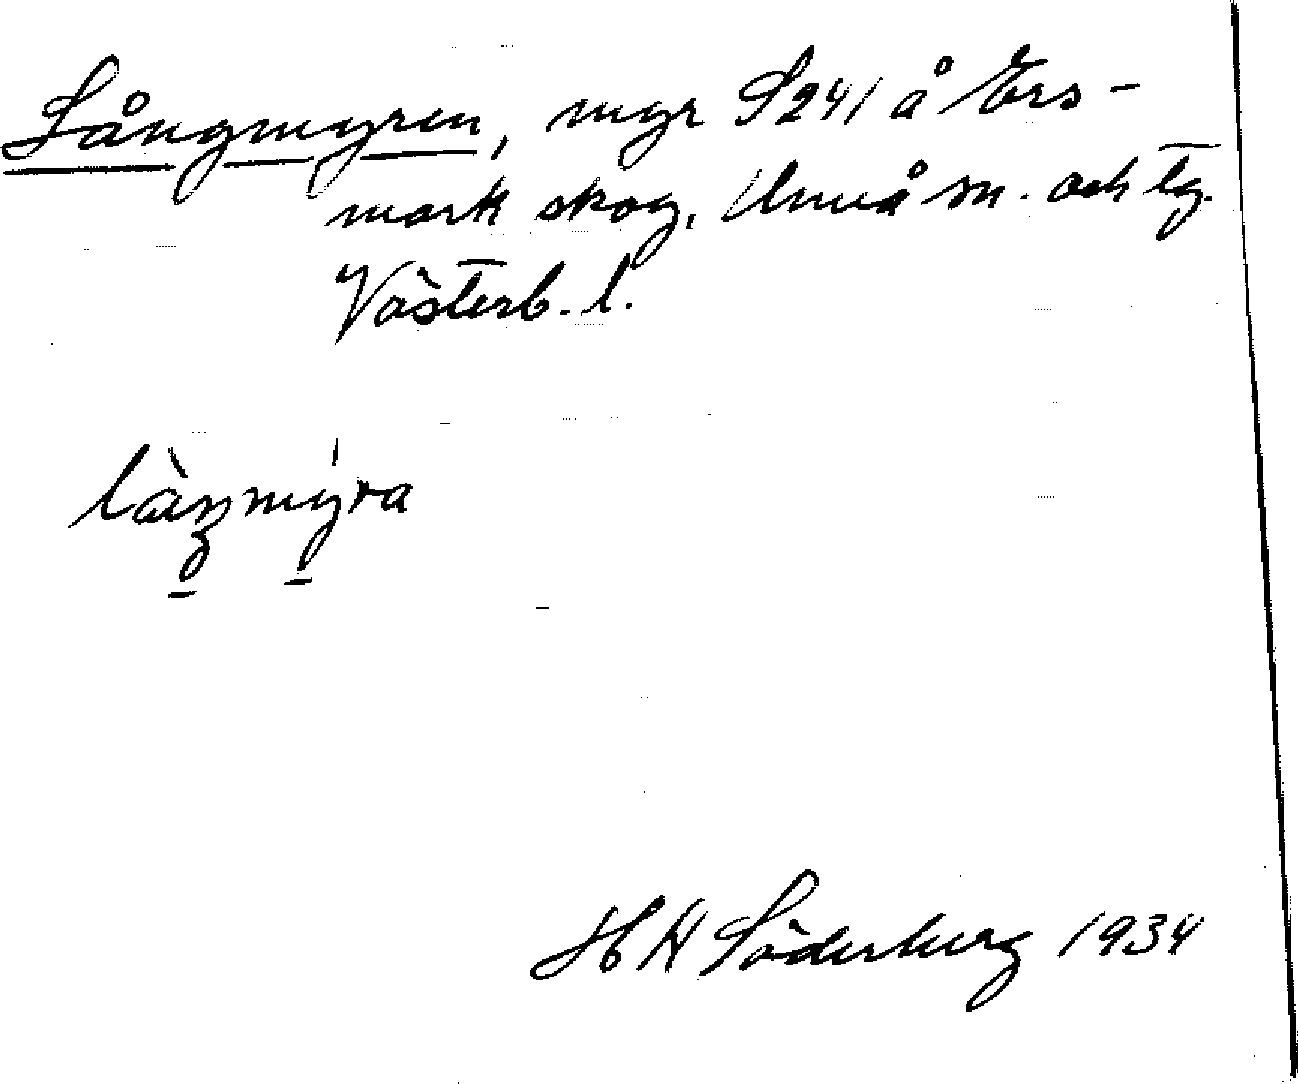 Långmyren, myr S241 å Ers-
mark skog, Umeå sn. och tg.
Västerb. l.
làŋmýra
H Söderberg 1934